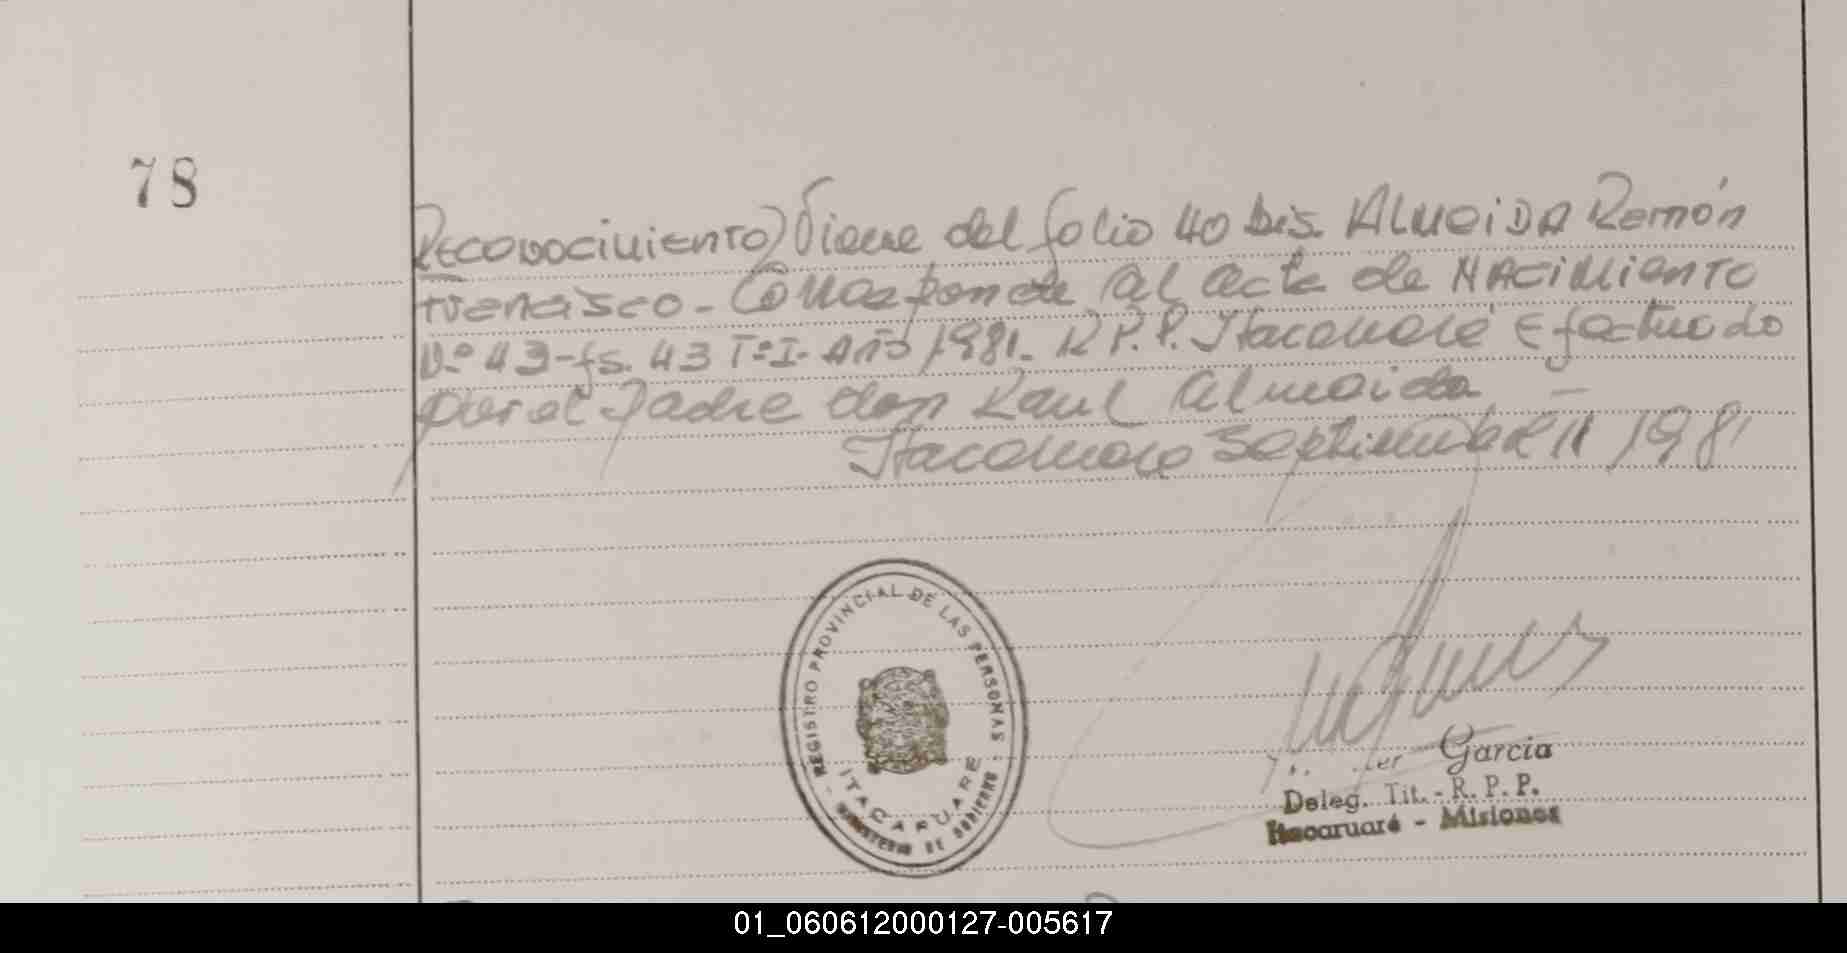 78
Reconocimiento) Viene del folio 40 bis. ALMEIDA Ramón
Francisco - Corresponde al acta de NACIMIENTO
Nº 43 - fs. 43 Tº I - Año 1981. R.P.P. Itacaruaré Efectuado
por el Padre don Raul Almeida
Itacaruaré Septiembre 11 1981
REGISTRO PROVINCIAL DE LAS PERSONAS
- MINISTERIO DE GOBIERNO -
ITACARUARE
Garcia
Deleg. Tit. - R. P. P.
Itacaruaré - Misiones
01_060612000127-005617